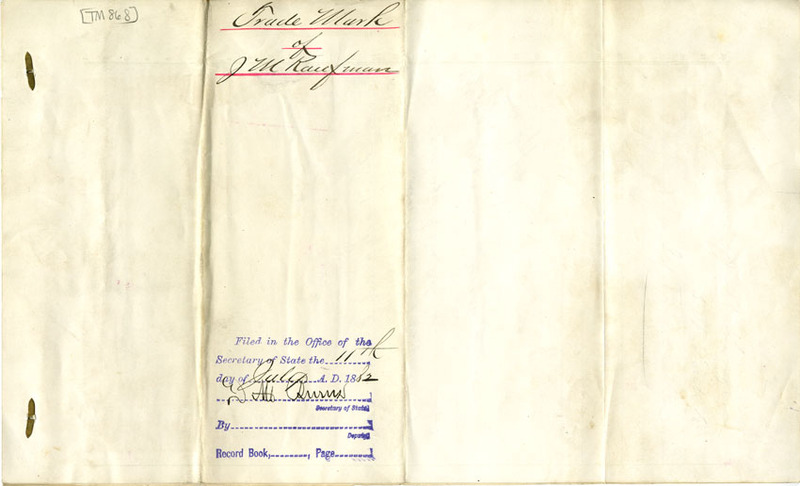 [TM868]
Trade Mark
of
J M Kaufman
Filed in the Office of the
Secretary of State the 11th
day of July A. D. 1882
D. M. Burns
Secretary of State
By
Deputy
Record Book, , Page